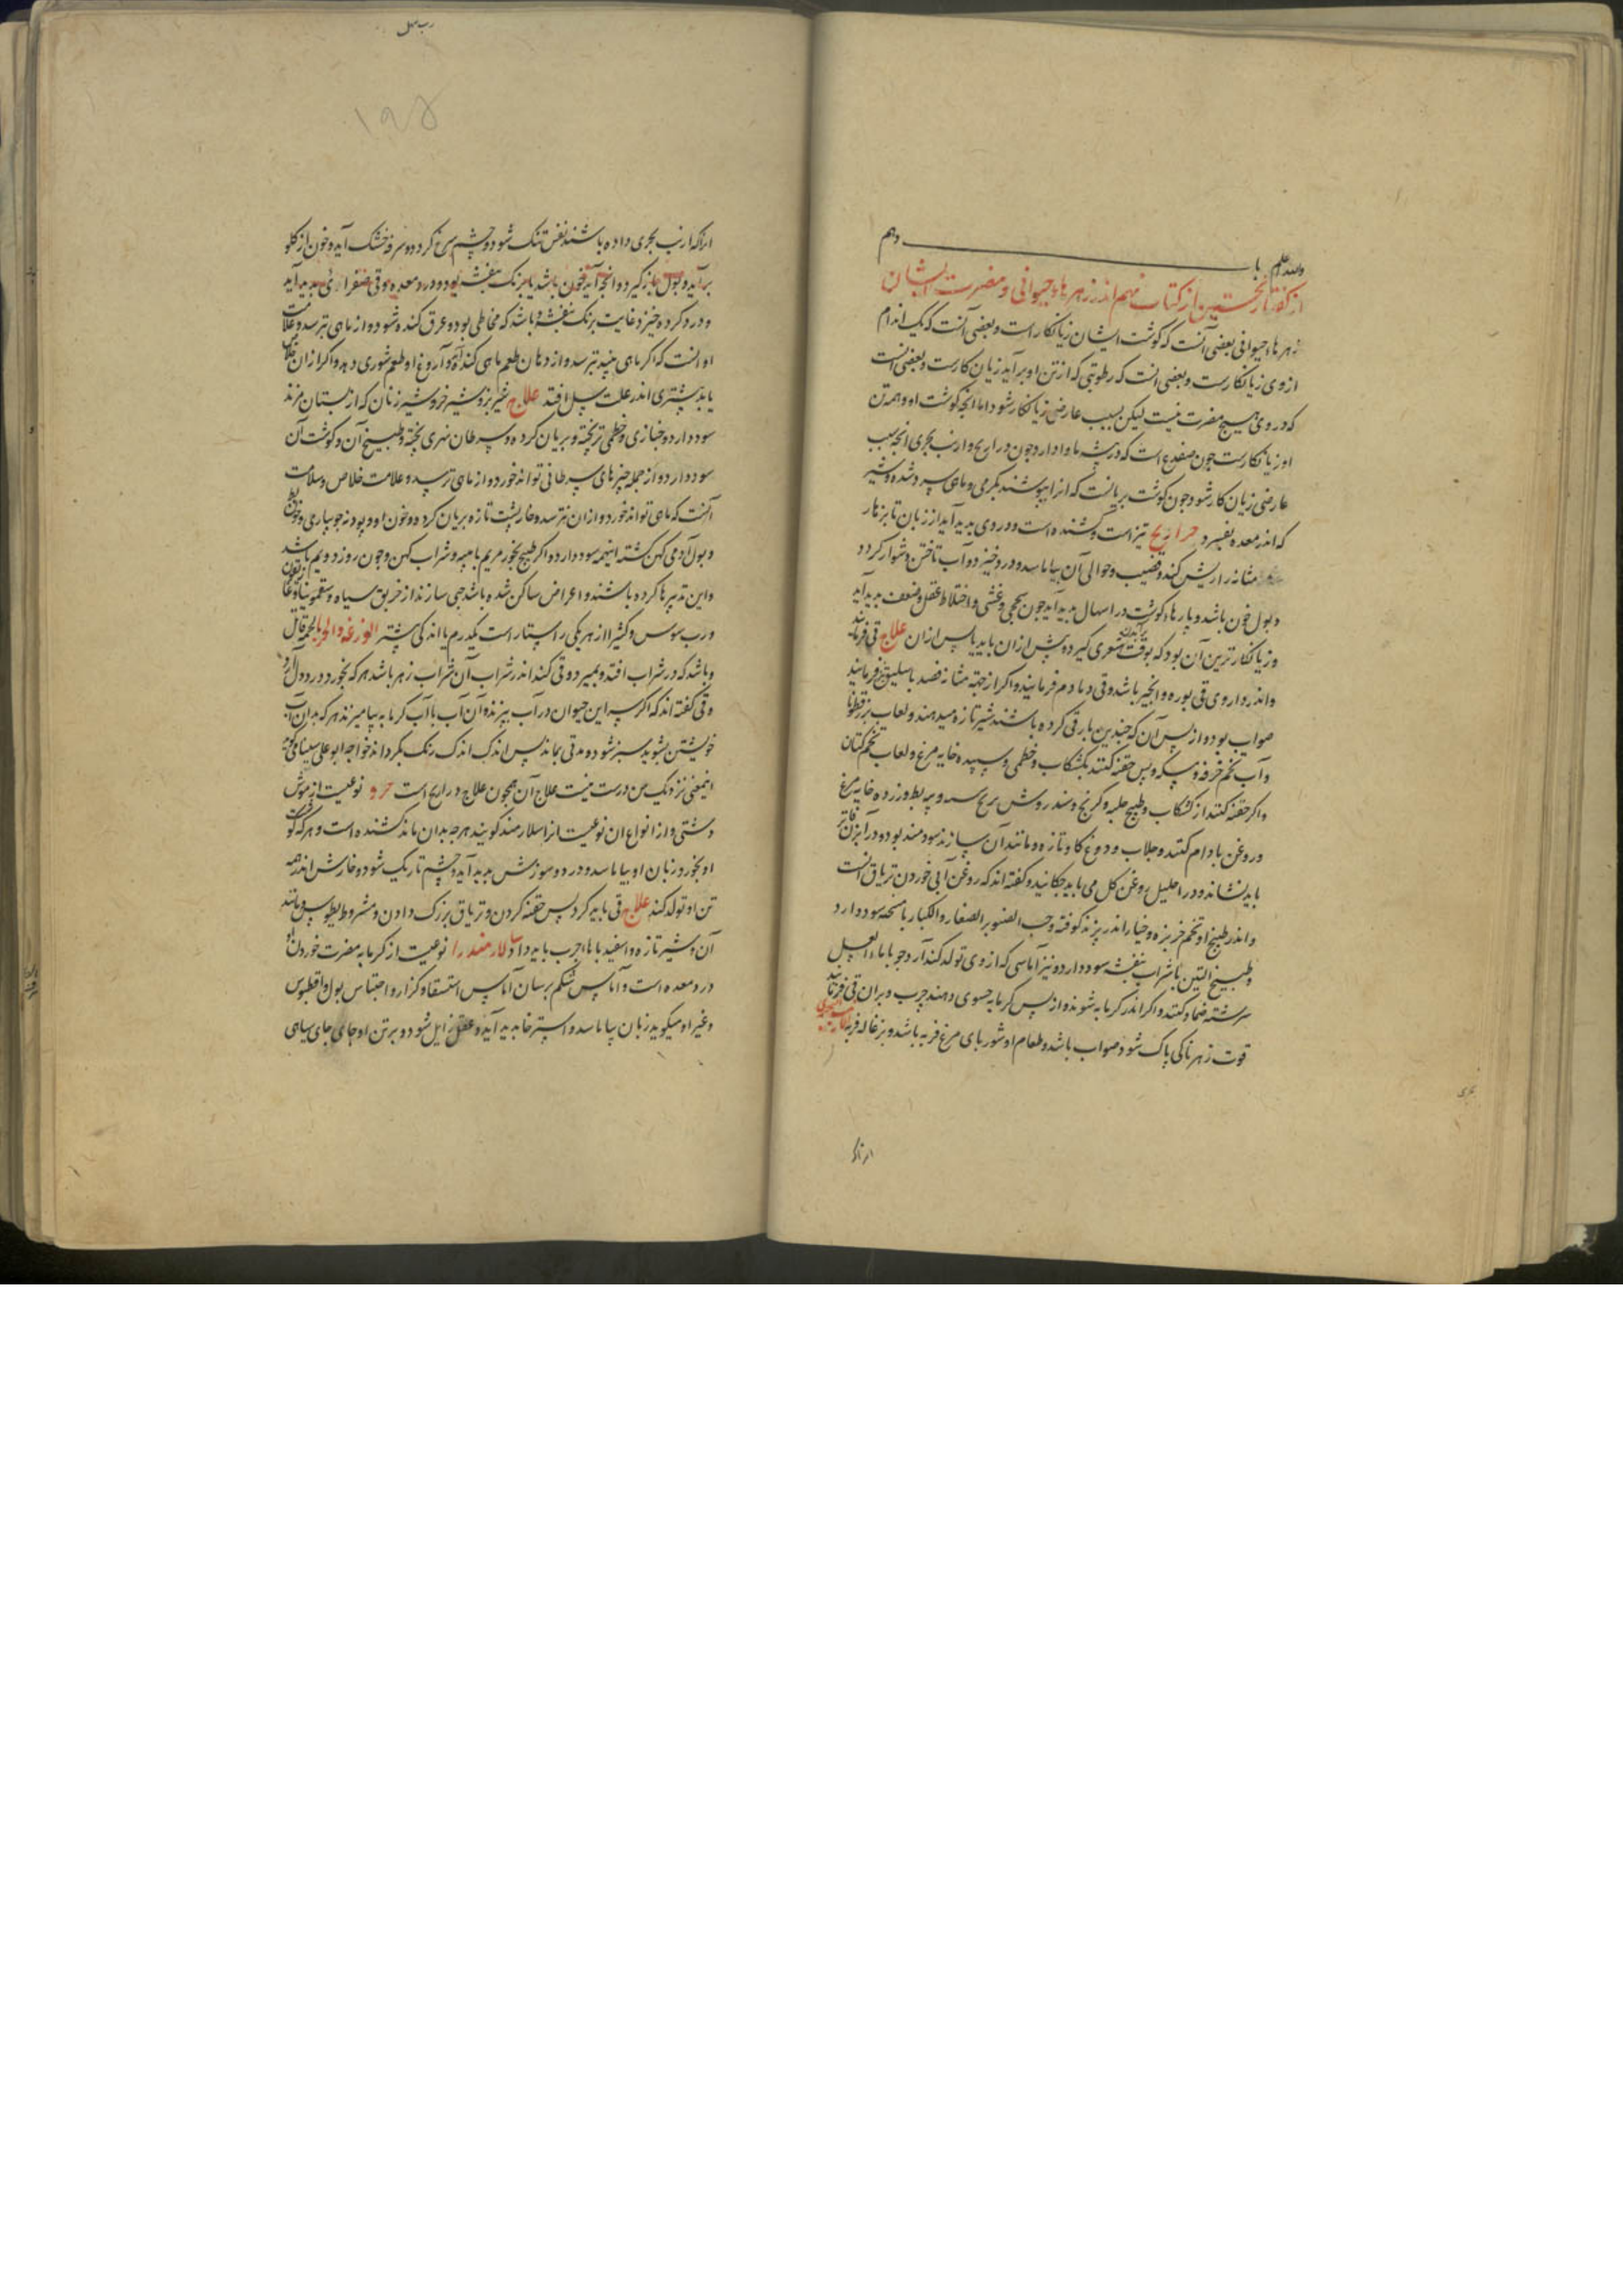 والله اعلم با ـــــ دهم
از گفتار نخستین از کتاب نهم اندر زهرهاء حیوانی و مضرت ایشان
زهرهاء حیوانی بعضی آنست که گوشت ایشان زیانکار است و بعضی آنست که یک اندام
از وی زیانکارست و بعضی انست که رطوبتی که از تن او برآید زیان کارست و بعضی انست
که در وی هیچ مضرت نیست لیکن بسبب عارضی زیانکار شود اما انچه گوشت او و همه تن
او زیانکارست چون ضفدع است که در بیشه ماوا دارد و چون ذراریح و ارنب بحری انچه بسبب
عارضی زیان کار شود چون گوشت بریانست که انرا بپوشند بگرمی و ماهی سرد شده و شیر
که اندر معده بفسرد ذراریح تیز است و کشنده است و درد وی پدید آید از زبان تا بزهار
مثانه را ریش کند و قضیب و حوالی آن بیاماسد و درد خیزد و آب تاختن دشوار گردد
و بول خون باشد و پارهاء گوشت در اسهال پدید آید چون سحجی و غشی و اختلاط عقل و ضعف پدید آید
و زیانکارترین آن بود که بوقت شعری گیرد و پیش ازان یابد یا پس ازان علاج قی فرمایند
و اندر داروی قی بوره و انجیر باشد و قی دمادم فرمایند و اگر از جهة مثانه فصد باسلیق فرمایند
صواب بود و از پس آن که چندین بار قی کرده باشند شیر تازه میدهند و لعاب بزرقطونا
و آب تخم خرفه و مسکه و پس حقنه کنند بکشکاب و خطمی و سپیده خایه مرغ و لعاب تخم کتان
و اگر حقنه کنند از کشکاب و طبیخ حلبه و کرنج و پیه بط و زرده خایه مرغ
و روغن بادام کنند و جلاب و دوغ گاو تازه و مانند آن سازند سودمند بود و در آبزن فاتر
باید نشاند و در احلیل روغن گل می باید چکانید و گفته اند که روغن آبی خوردن تریاق انست
و اندر طبیخ او تخم خربزه و خیار اندر پزند کوفته و حب الصنوبر الصغار والکبار سود دارد
و طبیخ التین با شراب بنفشه سود دارد و نیز آماسی که از وی تولد کند آرد جو با ماءالعسل
سرشته ضماد کنند و اگر اندر گرمابه شوند و از پس گرمابه حسوی دهند چرب و بران قی فرمایند
قوت زهرناکی پاک شود صواب باشد و طعام او شوربای مرغ فربه باشد و بزغاله فربه
رب سهل
۱۹۵
انرا که ارنب بحری داده باشند نفس تنگ شود و چشم سرخ گردد و سرفه خشک آید و خون از گلو
برآید و بول بازگیرد و انچه آید خون باشد یا برنگ بنفشه بود و درد معده و قی صفرائی پدید آید
و درد گرده خیزد و غایت برنگ بنفشه و باشد که مخاطی بود و عرق کنده شود و از ماهی ترسد و علامت
او انست که اگر ماهی بیند بترسد و از دهان طعم ماهی کنده و آروغ او طعم شوری دهد و اگر ازان خلاص
یابد بیشتری اندر علت سل افتد علاج شیر بز و شیر خر و شیر زنان که از پستان مزند
سود دارد و خبازی و خطمی تر پخته و بریان کرده و سرطان نهری پخته و طبیخ آن و گوشت آن
سود دارد و از جمله چیزهای سرطانی تواند خورد و از ماهی ترسد و علامت خلاص و سلامت
آنست که ماهی تواند خورد و ازان نترسد و خارپشت تازه بریان کرده و خون او و پودنه جویباری و خون بط
و بول آدمی کهن گشته اینهمه سود دارد و اگر طبیخ بخور مریم بامیبه و شراب کهن و چون روز دویم باشد
و این تدبیرها کرده باشند و اعراض ساکن شده باشد حبی سازند از خربق سیاه و سقمونیا و غاریقون
و رب سوس و کثیرا از هر یکی راستاراست یکدرم یا اندکی بیشتر الوزغة والحربا
و باشد که در شراب افتد و بمیرد و قی کند اندر شراب آن شراب زهر باشد هر که بخورد درد دل آرد
و قی گفته اند که اگر این حیوان در آب بپزند و ان آب باآب گرمابه بیامیزند هر که بدان آب
خویشتن بشوید سبز شود و مدتی بماند پس اندک اندک رنگ بگرداند خواجه ابوعلی سینا گوید
اینمعنی نزدیک من درست نیست علاج آن همچون علاج ذراریح است نوعیست از موش
دشتی و از انواع ان نوعیست انرا سلامند گویند هر چه بدان ماند کشنده است و هر که گوشت
او بخورد زبان او بیاماسد و درد و سوزش پدید آید و چشم تاریک شود و خارش اندر همه
تن او تولد کند علاج قی باید کرد پس حقنه کردن و تریاق بزرگ دادن و مشرودیطوس و مانند
آن و شیر تازه و اسفیدباهاء چرب باید داد سالامندرا نوعیست از کرمابه مضرت خوردن او
درد معده است و آماس شکم برسان آماس استسقا و کزاز و احتباس بول
و غیر او میگوید زبان بیاماسد و استرخا پدید آید و عقل زایل شود و بر تن او جای جای سیاهی